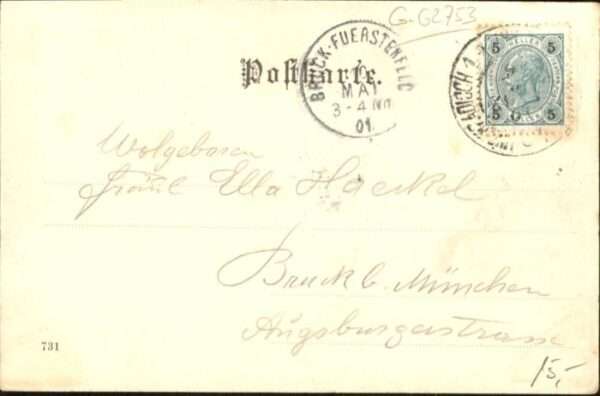 G-G2753
5 HELLER 5
5 5
Postkarte.
BRUCK-FUERSTENFELD
6
MAI
3-4 NM
01
Wolgeboren
Fräul Ella Haeckel
Bruck b. München
Augsburgerstrasse
731
15,-